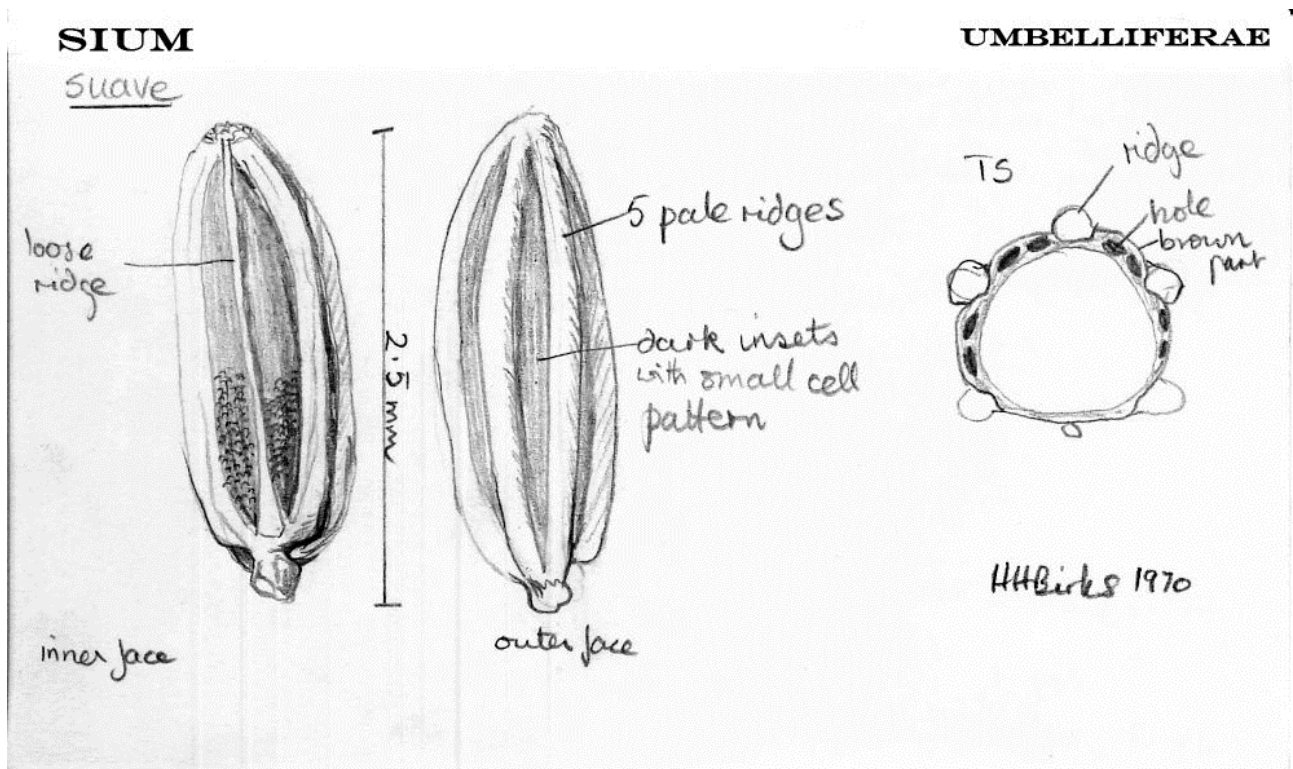 SIUM
UMBELLIFERAE
suave
loose
ridge
2.5 mm
5 pale ridges
dark insets
with small cell
pattern
TS
ridge
hole
brown
part
HHBirks 1970
inner face
outer face